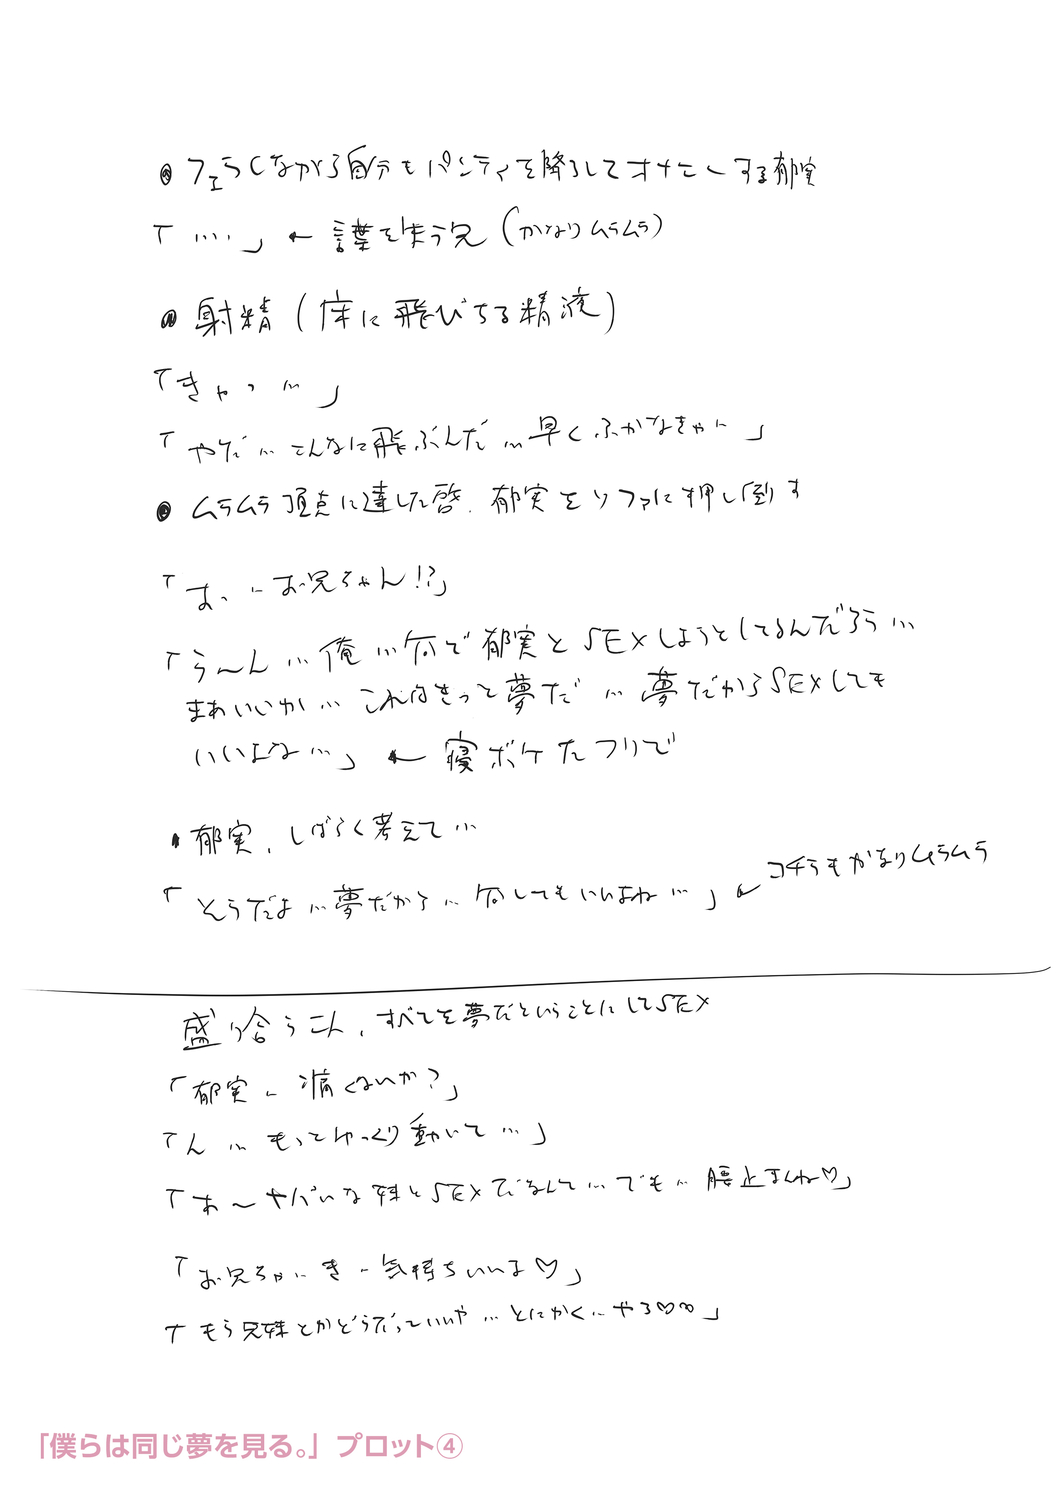 フェラしながら自分もパンティを降ろしてオナニーする郁実
「……」← 言葉を失う兄(かなりムラムラ)
射精(床に飛びちる精液)
「きゃっ…」
「やだ…こんなに飛ぶんだ…早くふかなきゃ…」
ムラムラ頂点に達した啓、郁実をソファに押し倒す
「あっ…お兄ちゃん!?」
「う〜ん…俺…何で郁実とSEXしようとしてるんだろう…
まあいいか…これはきっと夢だ…夢だからSEXしても
いいよな…」← 寝ボケたフリで
郁実、しばらく考えて…
「そうだよ…夢だから…何してもいいよね…」← コチラもかなりムラムラ
盛り合う二人、すべてを夢だということにしてSEX
「郁実…痛くないか?」
「ん…もっとゆっくり動いて…」
「あ〜ヤバいな妹とSEXだなんて…でも…腰止まんね♡」
「お兄ちゃん…き…気持ちいいよ♡」
「もう兄妹とかどうだっていいや…とにかく…やろ♡♡」
「僕らは同じ夢を見る。」プロット④